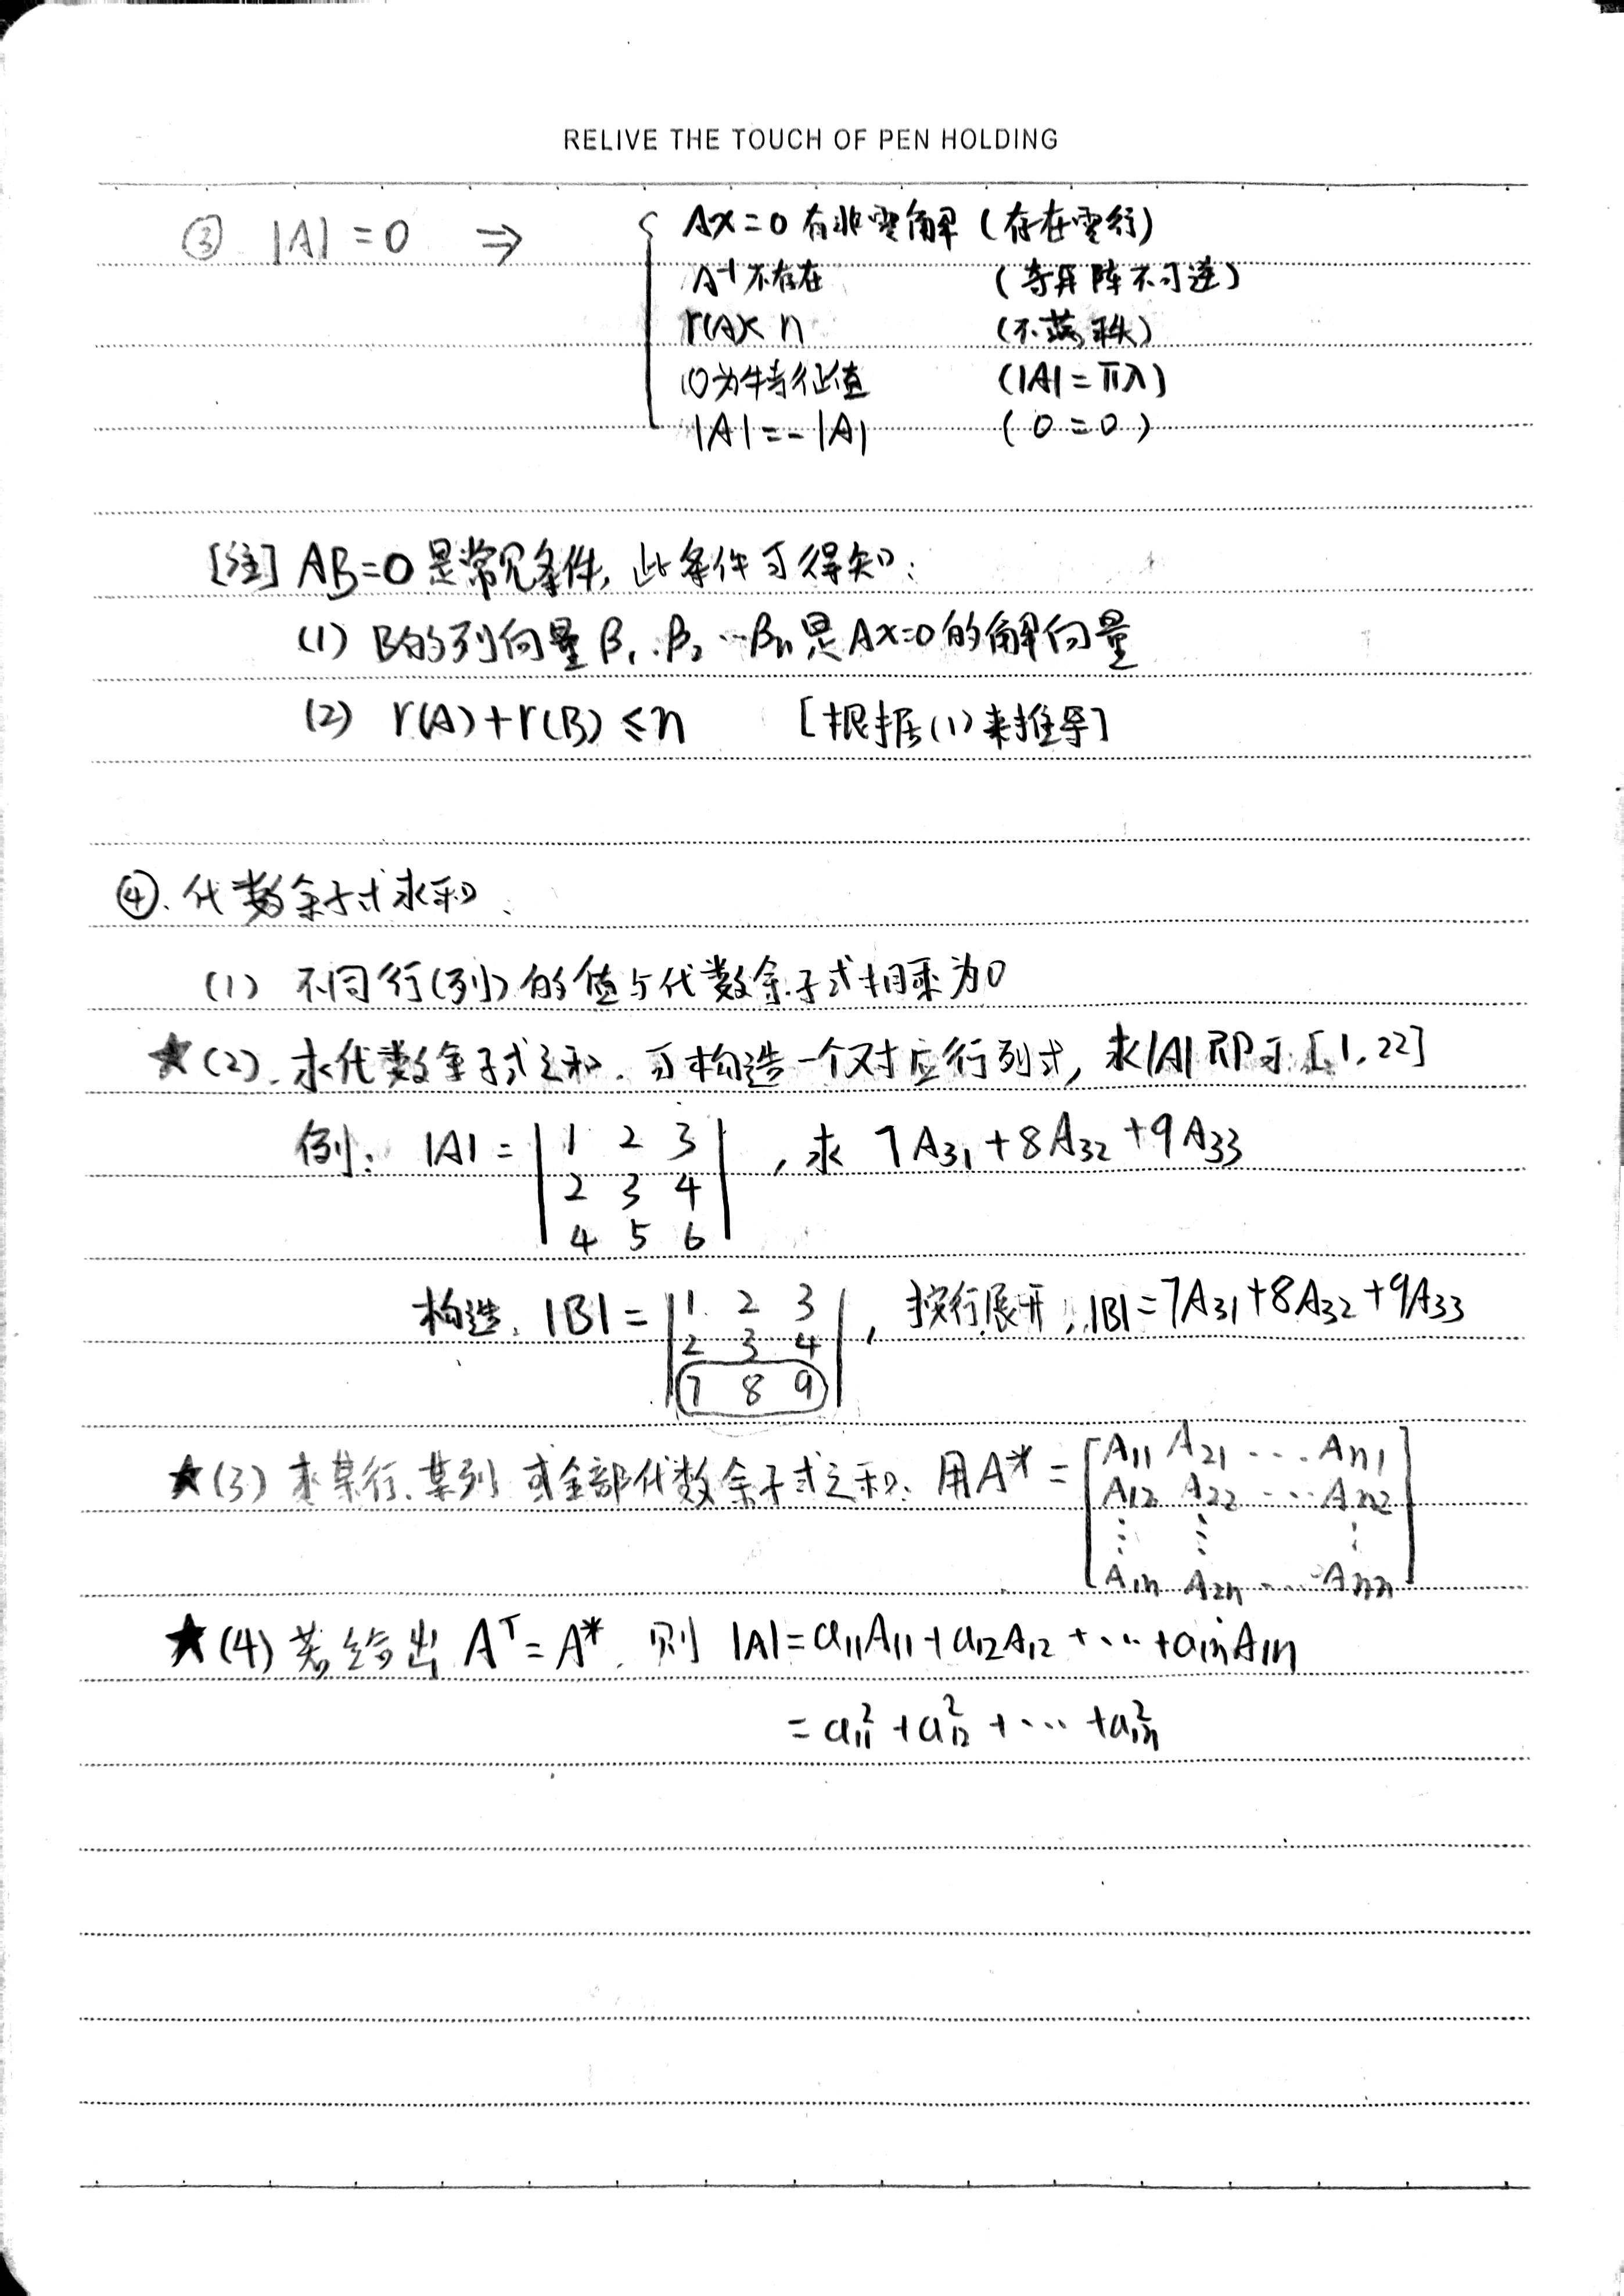 RELIVE THE TOUCH OF PEN HOLDING
③ |A| = 0 ⇒ { Ax=0有非零解 (存在零行)
A⁻¹不存在 (奇异阵不可逆)
r(A)< n (不满秩)
0为特征值 (|A| = πλ)
|A| = -|A| (0 = 0)
[注] AB=0是常见条件, 此条件可得知:
(1) B的列向量 β₁.β₂…βn是Ax=0的解向量
(2) r(A)+r(B) ≤ n [根据(1)来推导]
④. 代数余子式求和、
(1) 不同行(列)的值与代数余子式相乘为0
★(2). 求代数余子式之和. 可构造一个对应行列式, 求|A|即可. [1,22]
例: |A| = | 1 2 3 | , 求 7A₃₁ + 8A₃₂ + 9A₃₃
2 3 4
4 5 6
构造. |B| = | 1 2 3 | , 按行展开, |B| = 7A₃₁+8A₃₂+9A₃₃
2 3 4
7 8 9
★(3) 求某行.某列 或全部代数余子式之和: 用A* = [ A₁₁ A₂₁ … An₁ ]
A₁₂ A₂₂ … An₂
⋮ ⋮ ⋮
A₁n A₂n … Ann
★(4) 若给出 Aᵀ = A*. 则 |A| = a₁₁A₁₁ + a₁₂A₁₂ + … + a₁nA₁n
= a₁₁² + a₁₂² + … + a₁n²